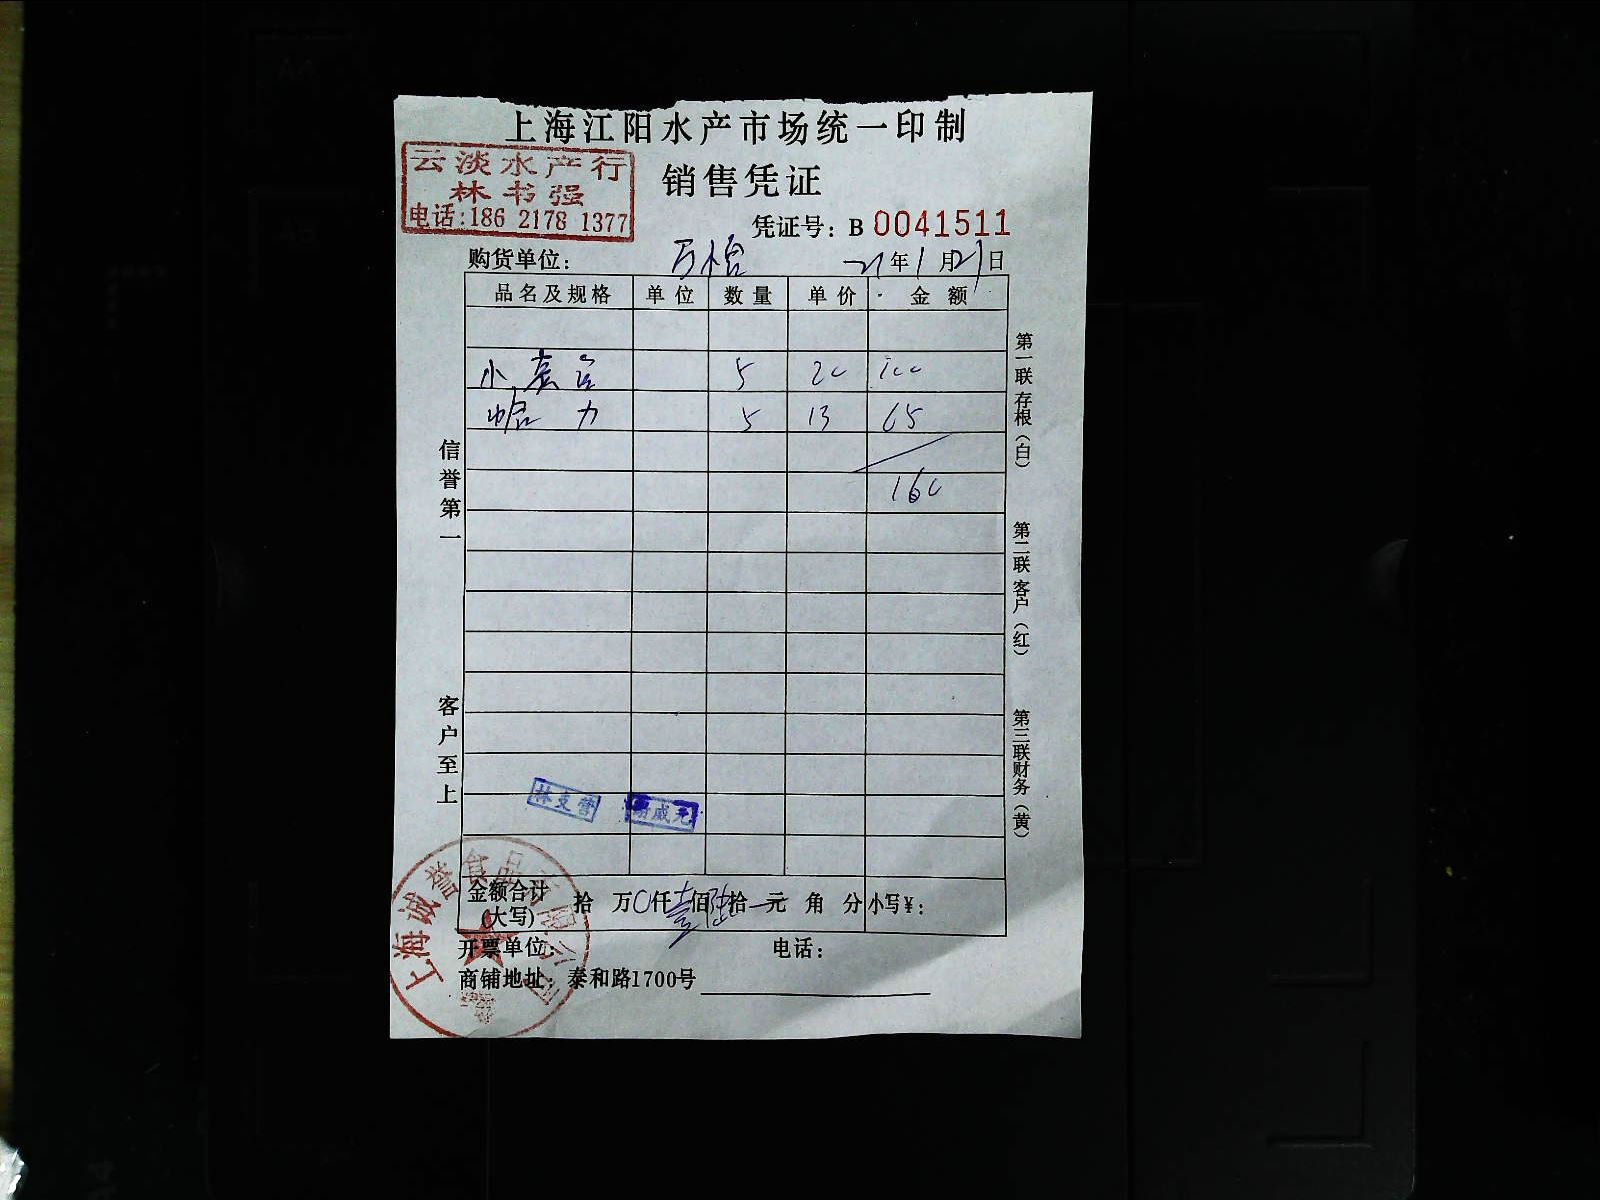 上海江阳水产市场统一印制
云淡水产行
林书强
电话:186 2178 1377
销售凭证
凭证号: B 0041511
购货单位: 万怡 21年1月21日
品名及规格 单位 数量 单价 金额
小 5 20 100
蛤力 5 13 65
160
信誉第一
客户至上
第一联存根(白)
第二联客户(红)
第三联财务(黄)
金额合计(大写) 拾 万0仟壹佰陆拾 元 角 分 小写¥:
开票单位: 电话:
商铺地址: 泰和路1700号
上海诚誉食品有限公司